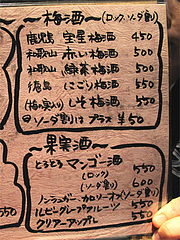 ~梅酒~ (ロック、ソーダ割)
鹿児島 宝星梅酒 450
和歌山 赤い梅酒 500
和歌山 緑茶梅酒 500
徳島 にごり梅酒 550
(梅の実入り) しそ梅酒 550
◎ソーダ割はプラス ¥50
~果実酒~
とろとろマンゴー酒
(ロック) 550
(ソーダ割) 600
ノンシュガーカロリーオフソーダ割り 550
ルビーグレープフルーツ 550
クリアーアップル 550
550